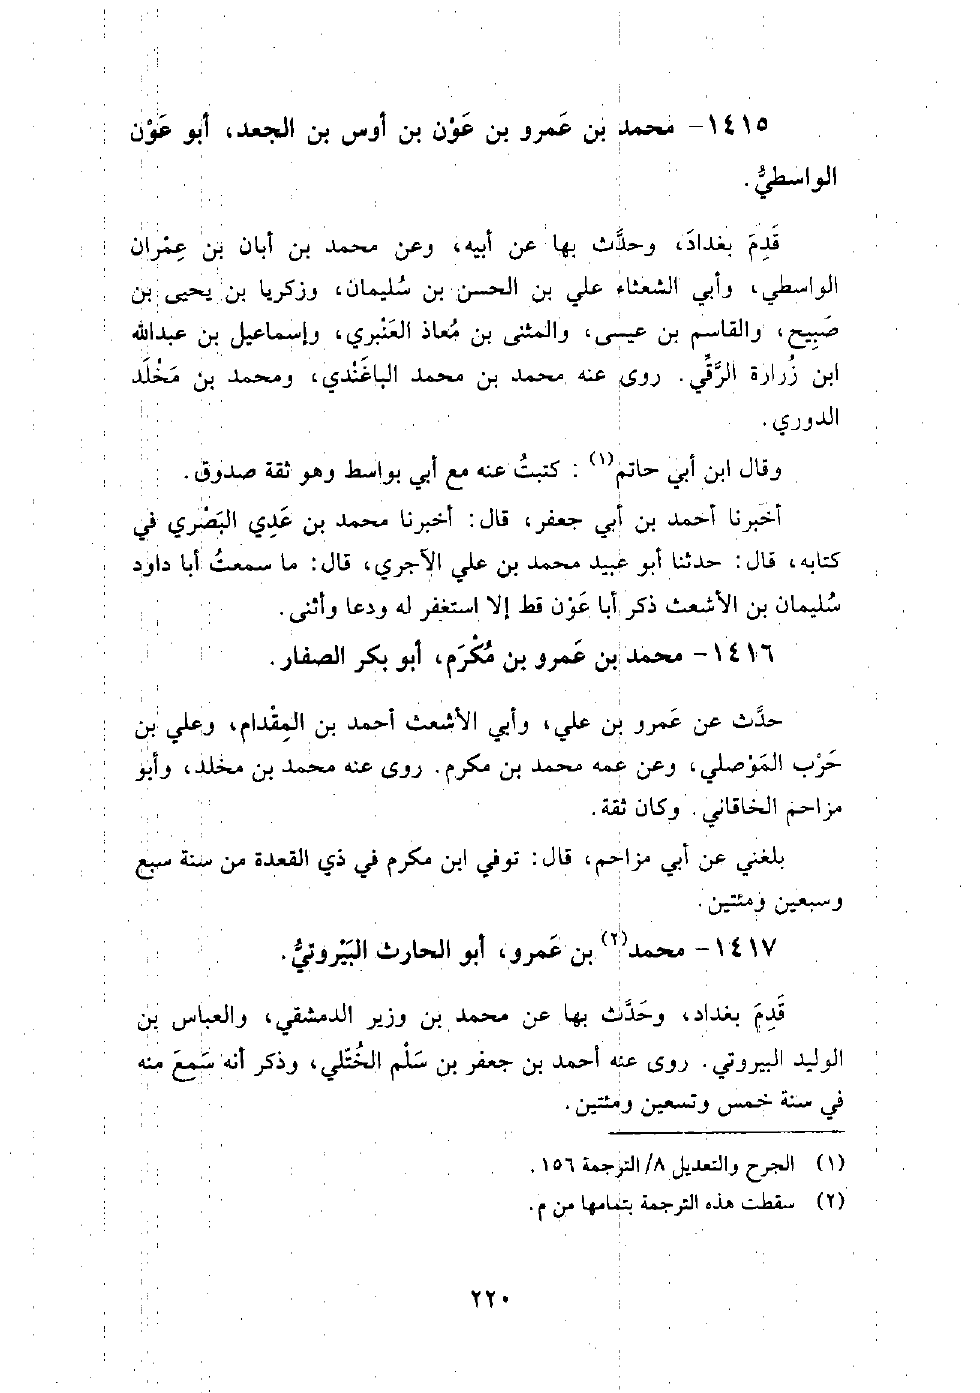 ١٤١٥- محمد بن عَمرو بن عَوْن بن أوس بن الجعد، أبو عَوْن
الواسطيُّ.
قَدِمَ بغدادَ، وحدَّث بها عن أبيه، وعن محمد بن أبان بن عِمْران
الواسطي، وأبي الشعثاء علي بن الحسن بن سُليمان، وزكريا بن يحيى بن
صَبِيح، والقاسم بن عيسى، والمثنى بن مُعاذ العَنْبري، وإسماعيل بن عبدالله
ابن زُرارة الرَّقِّي. روى عنه محمد بن محمد الباغَندي، ومحمد بن مَخْلَد
الدوري.
وقال ابن أبي حاتم(١) : كتبتُ عنه مع أبي بواسط وهو ثقة صدوق.
أخبرنا أحمد بن أبي جعفر، قال: أخبرنا محمد بن عَدِي البَصْري في
كتابه، قال: حدثنا أبو عبيد محمد بن علي الآجري، قال: ما سمعتُ أبا داود
سُليمان بن الأشعث ذكر أبا عَوْن قط إلا استغفر له ودعا وأثنى.
١٤١٦- محمد بن عَمرو بن مُكْرَم، أبو بكر الصفار.
حدَّث عن عَمرو بن علي، وأبي الأشعث أحمد بن المِقْدام، وعلي بن
حَرْب المَوْصلي، وعن عمه محمد بن مكرم. روى عنه محمد بن مخلد، وأبو
مزاحم الخاقاني. وكان ثقة.
بلغني عن أبي مزاحم، قال: توفي ابن مكرم في ذي القعدة من سنة سبع
وسبعين ومئتين.
١٤١٧- محمد(٢) بن عَمرو، أبو الحارث البَيْروتيُّ.
قَدِمَ بغداد، وحَدَّث بها عن محمد بن وزير الدمشقي، والعباس بن
الوليد البيروتي. روى عنه أحمد بن جعفر بن سَلْم الخُتَّلي، وذكر أنه سَمِعَ منه
في سنة خمس وتسعين ومئتين.
(١) الجرح والتعديل ٨/ الترجمة ١٥٦.
(٢) سقطت هذه الترجمة بتمامها من م.
٢٢٠